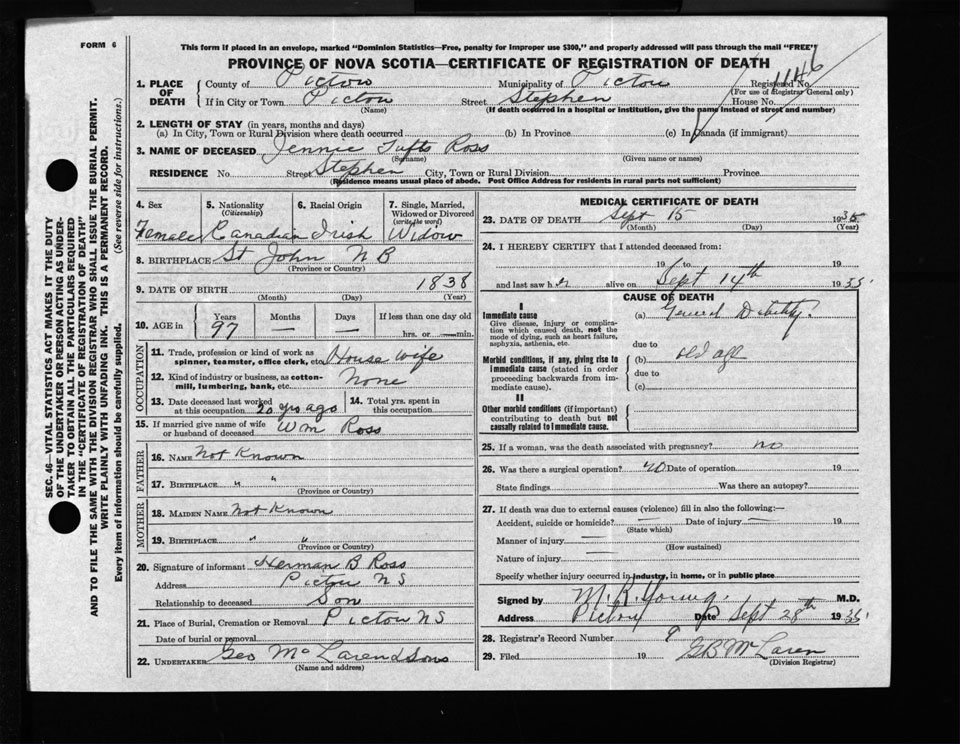 FORM 6
This form if placed in an envelope, marked "Dominion Statistics—Free, penalty for improper use $300," and properly addressed will pass through the mail "FREE"
PROVINCE OF NOVA SCOTIA—CERTIFICATE OF REGISTRATION OF DEATH
1146
1. PLACE OF DEATH
County of Pictou (Name) Municipality of Pictou Registered No. (For use of Registrar General only)
If in City or Town Pictou Street Stephen House No.
(If death occurred in a hospital or institution, give the name instead of street and number)
2. LENGTH OF STAY (in years, months and days)
(a) In City, Town or Rural Division where death occurred (b) In Province (c) In Canada (if immigrant)
3. NAME OF DECEASED Jennie Tufts Ross
(Surname) (Given name or names)
RESIDENCE No. Street Stephen City, Town or Rural Division Province
(Residence means usual place of abode. Post Office Address for residents in rural parts not sufficient)
SEC. 46—VITAL STATISTICS ACT MAKES IT THE DUTY
OF THE UNDERTAKER OR PERSON ACTING AS UNDER-
TAKER TO OBTAIN ALL THE PARTICULARS REQUIRED
IN THE "CERTIFICATE OF REGISTRATION OF DEATH"
AND TO FILE THE SAME WITH THE DIVISION REGISTRAR WHO SHALL ISSUE THE BURIAL PERMIT.
WRITE PLAINLY WITH UNFADING INK. THIS IS A PERMANENT RECORD.
Every item of information should be carefully supplied. (See reverse side for instructions.)
4. Sex 5. Nationality (Citizenship) 6. Racial Origin 7. Single, Married, Widowed or Divorced (write the word)
Female Canadian Irish Widow
8. BIRTHPLACE St John N B
(Province or Country)
9. DATE OF BIRTH 1838
(Month) (Day) (Year)
10. AGE in Years Months Days If less than one day old
97 — — hrs. or — min.
OCCUPATION
11. Trade, profession or kind of work as spinner, teamster, office clerk, etc. House wife
12. Kind of industry or business, as cotton-mill, lumbering, bank, etc. None
13. Date deceased last worked at this occupation 20 yrs ago 14. Total yrs. spent in this occupation
15. If married give name of wife or husband of deceased Wm Ross
FATHER
16. NAME Not Known
17. BIRTHPLACE " "
(Province or Country)
MOTHER
18. MAIDEN NAME Not Known
19. BIRTHPLACE " "
(Province or Country)
20. Signature of informant Herman B Ross
Address Pictou N S
Relationship to deceased Son
21. Place of Burial, Cremation or Removal Pictou N S
Date of burial or removal
22. UNDERTAKER Geo McLaren & Sons
(Name and address)
MEDICAL CERTIFICATE OF DEATH
23. DATE OF DEATH Sept 15 1935
(Month) (Day) (Year)
24. I HEREBY CERTIFY that I attended deceased from:
19 to 19
and last saw h er alive on Sept 14th 1935
CAUSE OF DEATH
I
Immediate cause
Give disease, injury or complication which caused death, not the mode of dying, such as heart failure, asphyxia, asthenia, etc.
(a) General Debility
due to
Morbid conditions, if any, giving rise to immediate cause (stated in order proceeding backwards from immediate cause).
(b) old age
due to
(c)
II
Other morbid conditions (if important) contributing to death but not causally related to immediate cause.
25. If a woman, was the death associated with pregnancy? no
26. Was there a surgical operation? no Date of operation 19
State findings Was there an autopsy?
27. If death was due to external causes (violence) fill in also the following:—
Accident, suicide or homicide? — Date of injury — 19
(State which)
Manner of injury —
(How sustained)
Nature of injury —
Specify whether injury occurred in industry, in home, or in public place
Signed by M. R. Young M.D.
Address Pictou Date Sept 28th 1935
28. Registrar's Record Number 9
29. Filed 19 G B McLaren
(Division Registrar)